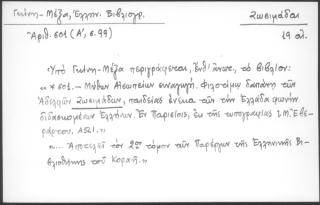 Γκίνη-Μέξα, Ἑλλην. Βιβλιογρ. Ζωσιμάδαι
Ἀριθ. 601 (Α', σ. 99) 19 αἰ.
Ὑπὸ Γκίνη-Μέξα περιγράφεται, ἔνθ' ἄνωτ., τὸ βιβλίον:
«*601.- Μύθων Αἰσωπείων συναγωγή. Φιλοτίμῳ δαπάνῃ τῶν
Ἀδελφῶν Ζωσιμάδων, παιδείας ἕνεκα τῶν τὴν Ἑλλάδα φωνὴν
διδασκομένων Ἑλλήνων. Ἐν Παρισίοις, ἐκ τῆς τυπογραφίας Ι.Μ. Ἐβε-
ράρτου, ΑΩΙ.»
«... Ἀποτελεῖ τὸν 2ον τόμον τῶν Παρέργων τῆς Ἑλληνικῆς Βι-
βλιοθήκης τοῦ Κοραῆ.»